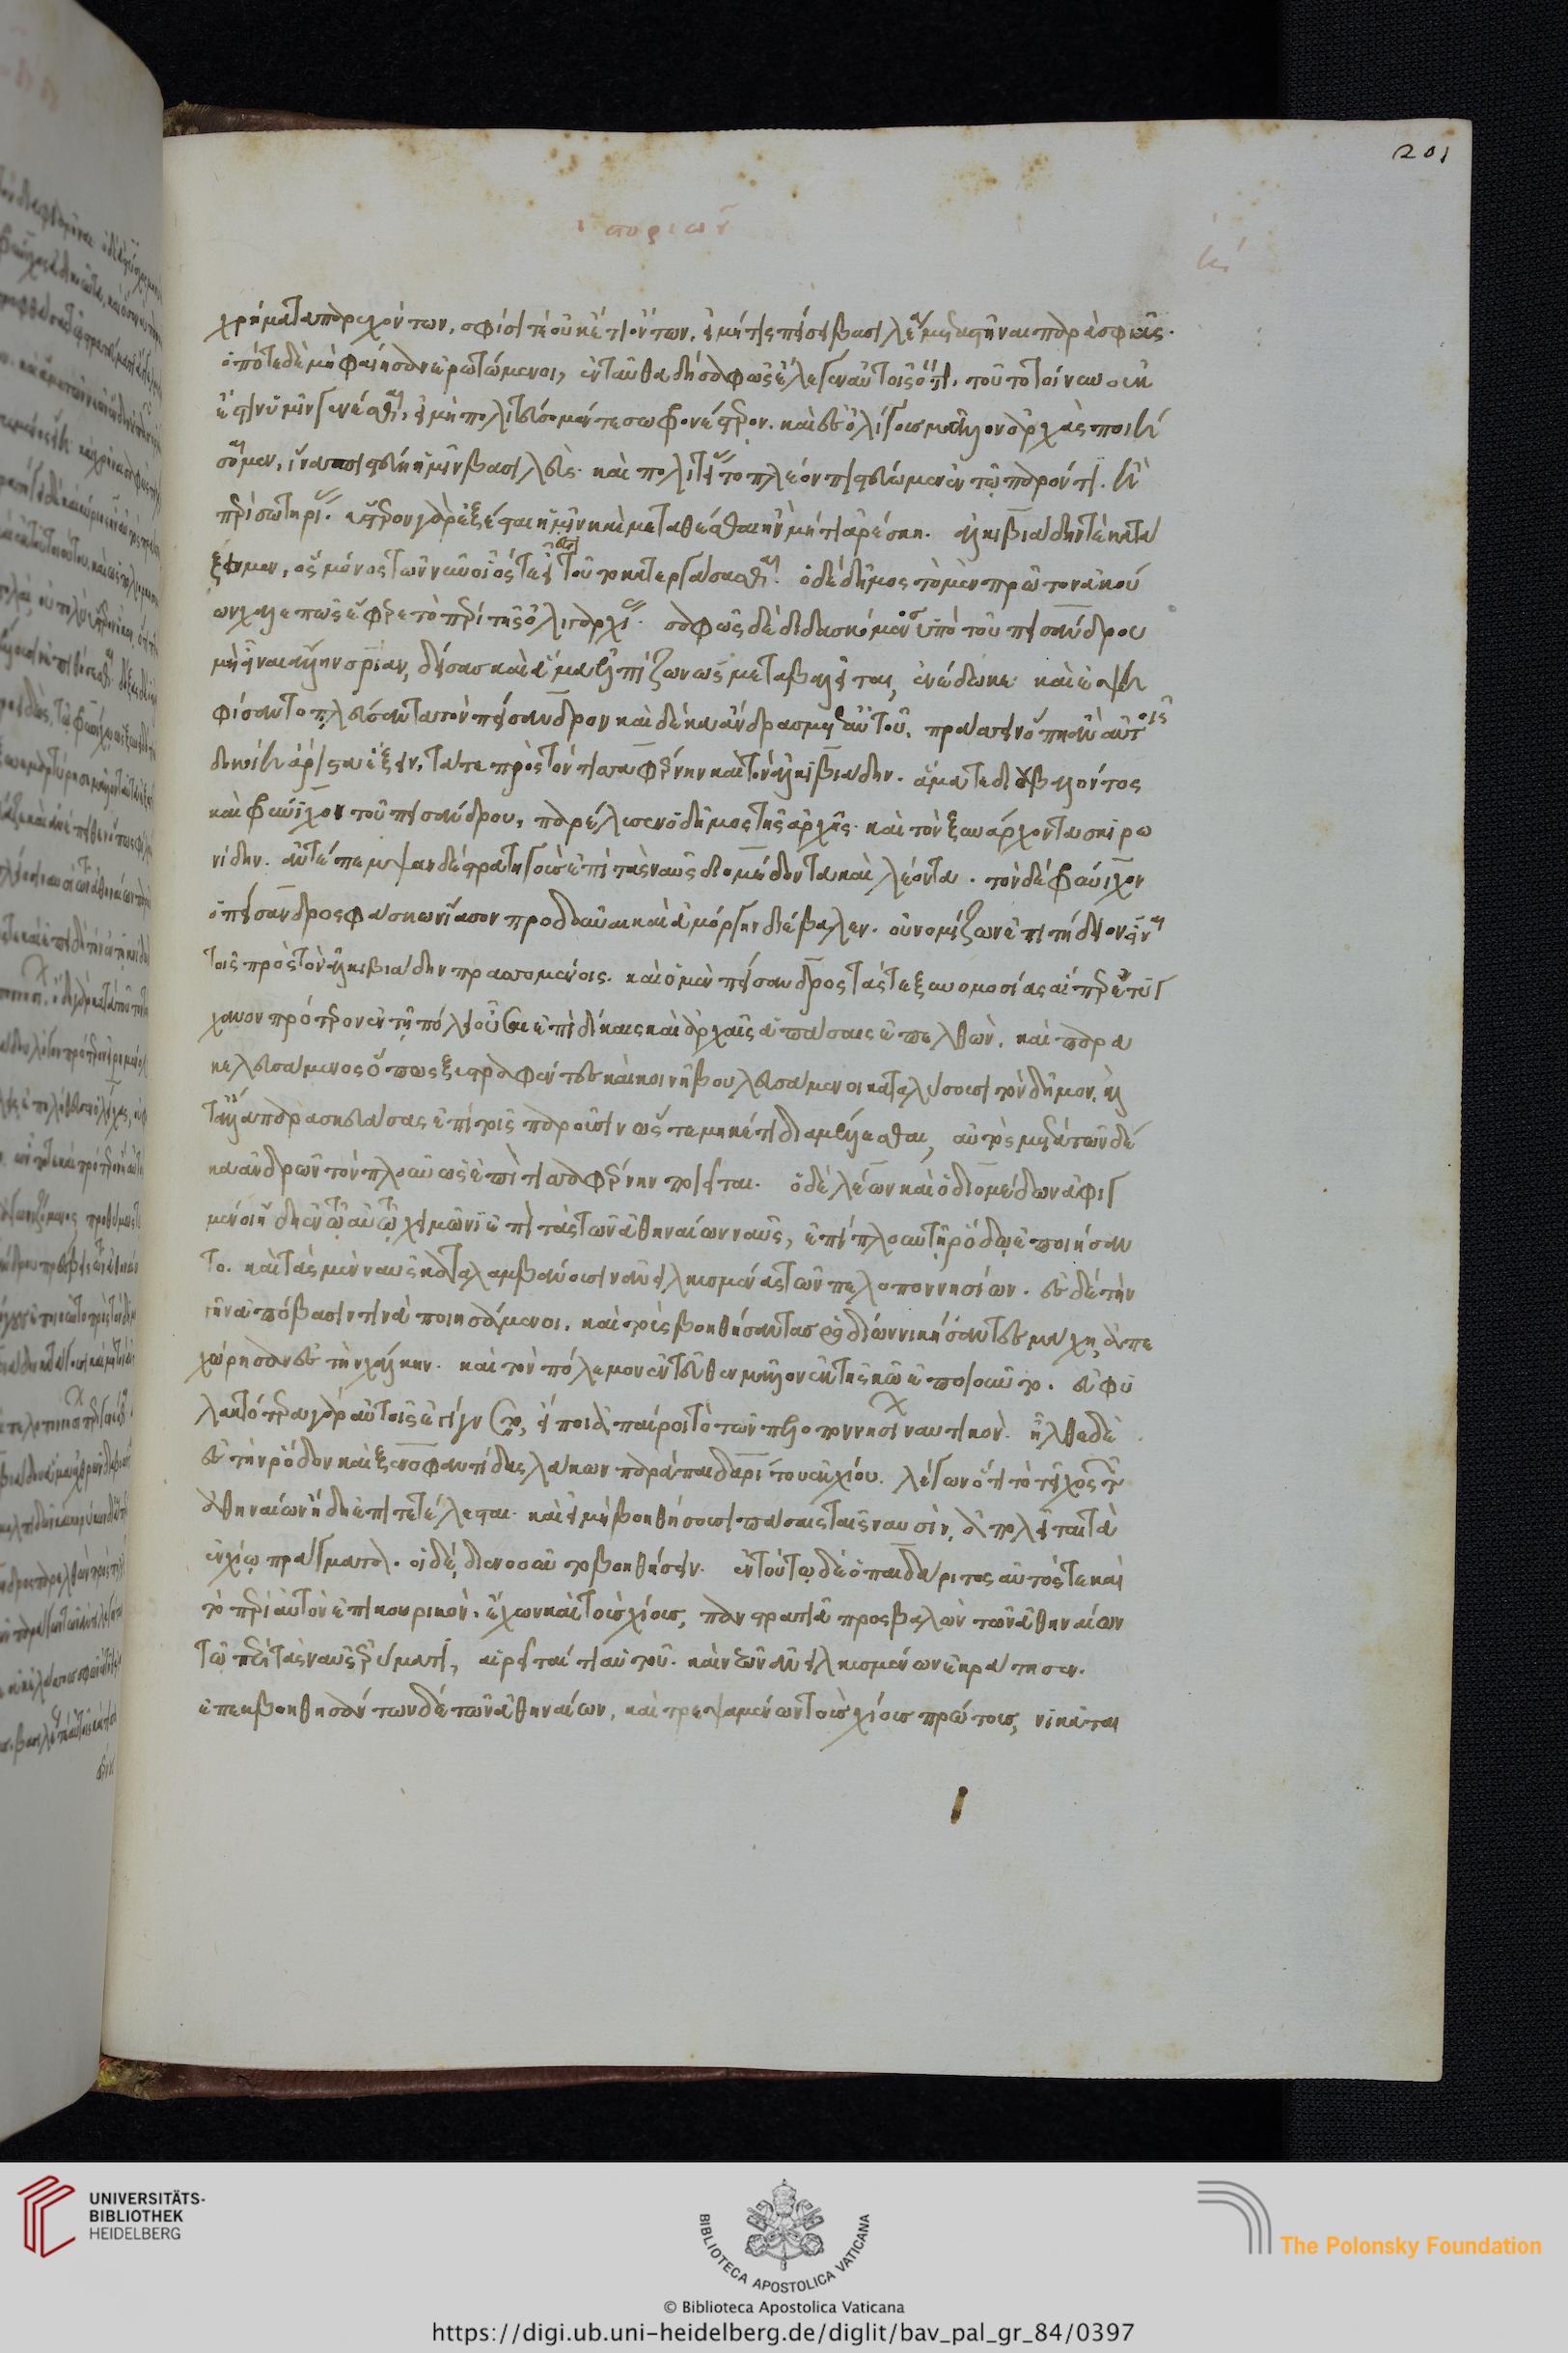 ἱστοριῶν
201
χρήματα παρεχόντων, σφίσί τε οὐκέτι ὄντων, εἰ μή τις πείσει βασιλέα μεταστῆναι παρὰ σφᾶς.
ὁπότε δὲ μὴ φαίησαν ἐρωτώμενοι, ἐνταῦθα δὴ σαφῶς ἔλεγεν αὐτοῖς ὅτι, τοῦτο τοίνυν οὐκ
ἔστιν ἡμῖν γενέσθαι, εἰ μὴ πολιτεύσομέν τε σωφρονέστερον. καὶ ἐς ὀλίγους μᾶλλον ἀρχὰς ποιή
σομεν, ἵνα πιστεύῃ ἡμῖν βασιλεύς. καὶ πολιτείας τὸ πλέον πιστεύωμεν ἐν τῷ παρόντι. ἢ
περὶ σωτηρίας. ὕστερον γὰρ ἐξέσται ἡμῖν καὶ μεταθέσθαι ἢν μή τι ἀρέσκῃ. ἀλκιβιάδην τε κατά
ξομεν, ὃς μόνος τῶν νῦν οἷός τε εἶ τοῦτο κατεργάσασθαι. ὁ δὲ δῆμος τὸ μὲν πρῶτον ἀκού
ων χαλεπῶς ἔφερε τὸ περὶ τῆς ὀλιγαρχίας. σαφῶς δὲ διδασκόμενος ὑπὸ τοῦ πεισάνδρου
μὴ εἶναι ἄλλην σωτηρίαν, δείσας καὶ ἅμα ἐλπίζων ὡς μεταβαλεῖται, ἐνέδωκε. καὶ ἐψη
φίσαντο πλεύσαντα τὸν πείσανδρον καὶ δέκα ἄνδρας μετ' αὐτοῦ, πράσσειν ὅπῃ ἂν αὐτοῖς
δοκοίη ἄριστα ἕξειν, τά τε πρὸς τὸν τισσαφέρνην καὶ τὸν ἀλκιβιάδην. ἅμα τε διαβαλόντος
καὶ φρύνιχον τοῦ πεισάνδρου, παρέλυσεν ὁ δῆμος τῆς ἀρχῆς. καὶ τὸν ξυνάρχοντα σκιρω
νίδην. ἀντέπεμψαν δὲ στρατηγοὺς ἐπὶ τὰς ναῦς διομέδοντα καὶ λέοντα. τὸν δὲ φρύνιχον
ὁ πείσανδρος φάσκων ἴασον προδοῦναι καὶ ἀμόργην διέβαλεν. οὐ νομίζων ἐπιτήδειον εἶναι
τοῖς πρὸς τὸν ἀλκιβιάδην πρασσομένοις. καὶ ὁ μὲν πείσανδρος τάς τε ξυνομοσίας αἵπερ ἐτύγ
χανον πρότερον ἐν τῇ πόλει οὖσαι ἐπὶ δίκαις καὶ ἀρχαῖς ἁπάσαις ἐπελθὼν, καὶ παρα
κελευσάμενος ὅπως ξυστραφέντες καὶ κοινῇ βουλευσάμενοι καταλύσουσι τὸν δῆμον, καὶ
τἄλλα παρασκευάσας ἐπὶ τοῖς παροῦσιν ὥστε μηκέτι διαμέλλεσθαι, αὐτὸς μετὰ τῶν δέ
κα ἀνδρῶν τὸν πλοῦν ὡς ἐπὶ τισσαφέρνην ποιεῖται. ὁ δὲ λέων καὶ ὁ διομέδων ἀφιγ
μένοι ἤδη ἐν τῷ αὐτῷ χειμῶνι ἐπὶ τὰς τῶν ἀθηναίων ναῦς, ἐπίπλουν τῇ ῥόδῳ ἐποιήσαν
το. καὶ τὰς μὲν ναῦς καταλαμβάνουσιν ἀνειλκυσμένας τῶν πελοποννησίων. ἐς δὲ τὴν
γῆν ἀπόβασίν τινα ποιησάμενοι, καὶ τοὺς βοηθήσαντας ῥοδίων νικήσαντες μάχῃ, ἀπε
χώρησαν ἐς τὴν χάλκην. καὶ τὸν πόλεμον ἐντεῦθεν μᾶλλον ἐκ τῆς κῶ ἐποιοῦντο. εὐφυ
λακτότερα γὰρ αὐτοῖς ἐγίγνετο, εἴ ποι ἀπαίροι τὸ τῶν πελοποννησίων ναυτικόν. ἦλθε δὲ
ἐς τὴν ῥόδον καὶ ξενοφαντίδας λάκων παρὰ πεδαρίτου ἐκ χίου. λέγων ὅτι τὸ τεῖχος τῶν
ἀθηναίων ἤδη ἐπιτετέλεσται. καὶ εἰ μὴ βοηθήσουσι πάσαις ταῖς ναυσὶν, ἀπολεῖται τὰ
ἐν χίῳ πράγματα. οἱ δὲ, διενοοῦντο βοηθήσειν. ἐν τούτῳ δὲ ὁ παιδάριτος αὐτός τε καὶ
τὸ περὶ αὐτὸν ἐπικουρικὸν. ἔχων καὶ τοὺς χίους, πανστρατιᾷ προσβαλὼν τῶν ἀθηναίων
τῷ περὶ τὰς ναῦς ἐρύματι, αἱρεῖ τέ τι αὐτοῦ. καὶ νεῶν ἀνειλκυσμένων ἐκράτησεν.
ἐπεκβοηθησάντων δὲ τῶν ἀθηναίων, καὶ τρεψαμένων τοὺς χίους πρώτους, νικᾶται
UNIVERSITÄTS-
BIBLIOTHEK
HEIDELBERG
BIBLIOTECA APOSTOLICA VATICANA
The Polonsky Foundation
© Biblioteca Apostolica Vaticana
https://digi.ub.uni-heidelberg.de/diglit/bav_pal_gr_84/0397